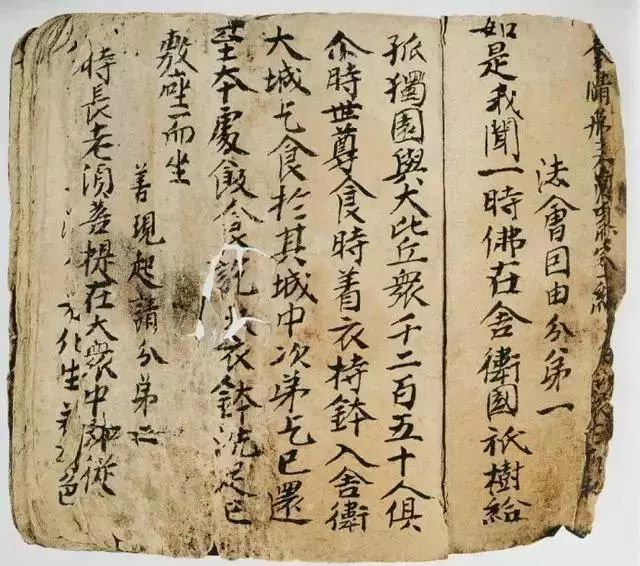 奉請
法會因由分第一
如是我聞一時佛在舍衛國祇樹給
孤獨園與大比丘衆千二百五十人俱
尒時世尊食時着衣持鉢入舍衛
大城乞食於其城中次第乞已還
至本處飯食訖收衣鉢洗足已
敷座而坐
善現起請分第二
時長老須菩提在大衆中即從
化生若 色